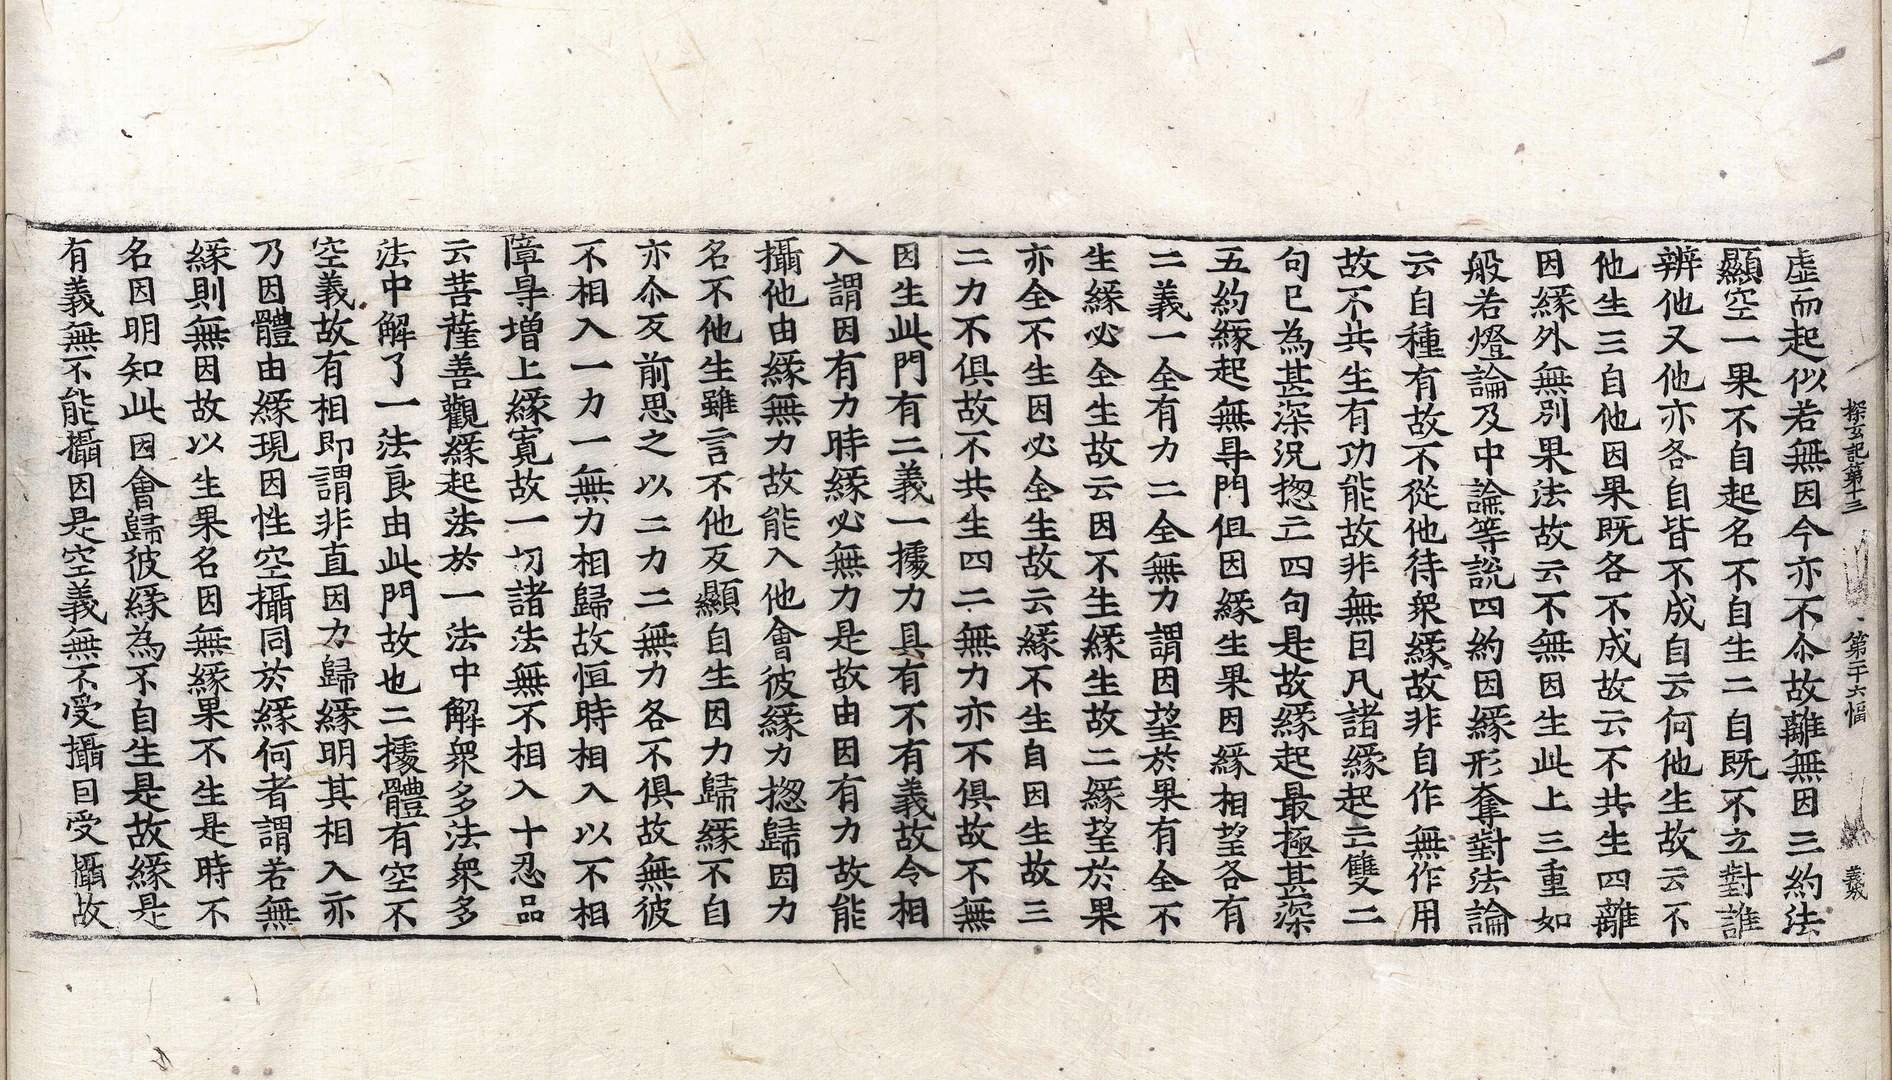 探玄記第十三 第二十六幅 義
虛而起似若無因今亦不尒故離無因三約法
顯空一果不自起名不自生二自既不立對誰
辨他又他亦各自皆不成自云何他生故云不
他生三自他因果既各不成故云不共生四離
因緣外無別果法故云不無因生此上三重如
般若燈論及中論等說四約因緣形奪對法論
云自種有故不從他待衆緣故非自作無作用
故不共生有功能故非無因凡諸緣起三雙二
句已為甚深況揔亡四句是故緣起最極甚深
五約緣起無㝵門但因緣生果因緣相望各有
二義一全有力二全無力謂因望於果有全不
生緣必全生故云因不生緣生故二緣望於果
亦全不生因必全生故云緣不生自因生故三
二力不俱故不共生四二無力亦不俱故不無
因生此門有二義一據力具有不有義故令相
入謂因有力時緣必無力是故由因有力故能
攝他由緣無力故能入他會彼緣力揔歸因力
名不他生雖言不他反顯自生因力歸緣不自
亦尒反前思之以二力二無力各不俱故無彼
不相入一力一無力相歸故恒時相入以不相
障㝵增上緣寬故一切諸法無不相入十忍品
云菩薩善觀緣起法於一法中解衆多法衆多
法中解了一法良由此門故也二據體有空不
空義故有相即謂非直因力歸緣明其相入亦
乃因體由緣現因性空攝同於緣何者謂若無
緣則無因故以生果名因無緣果不生是時不
名因明知此因會歸彼緣為不自生是故緣是
有義無不能攝因是空義無不受攝因受攝故